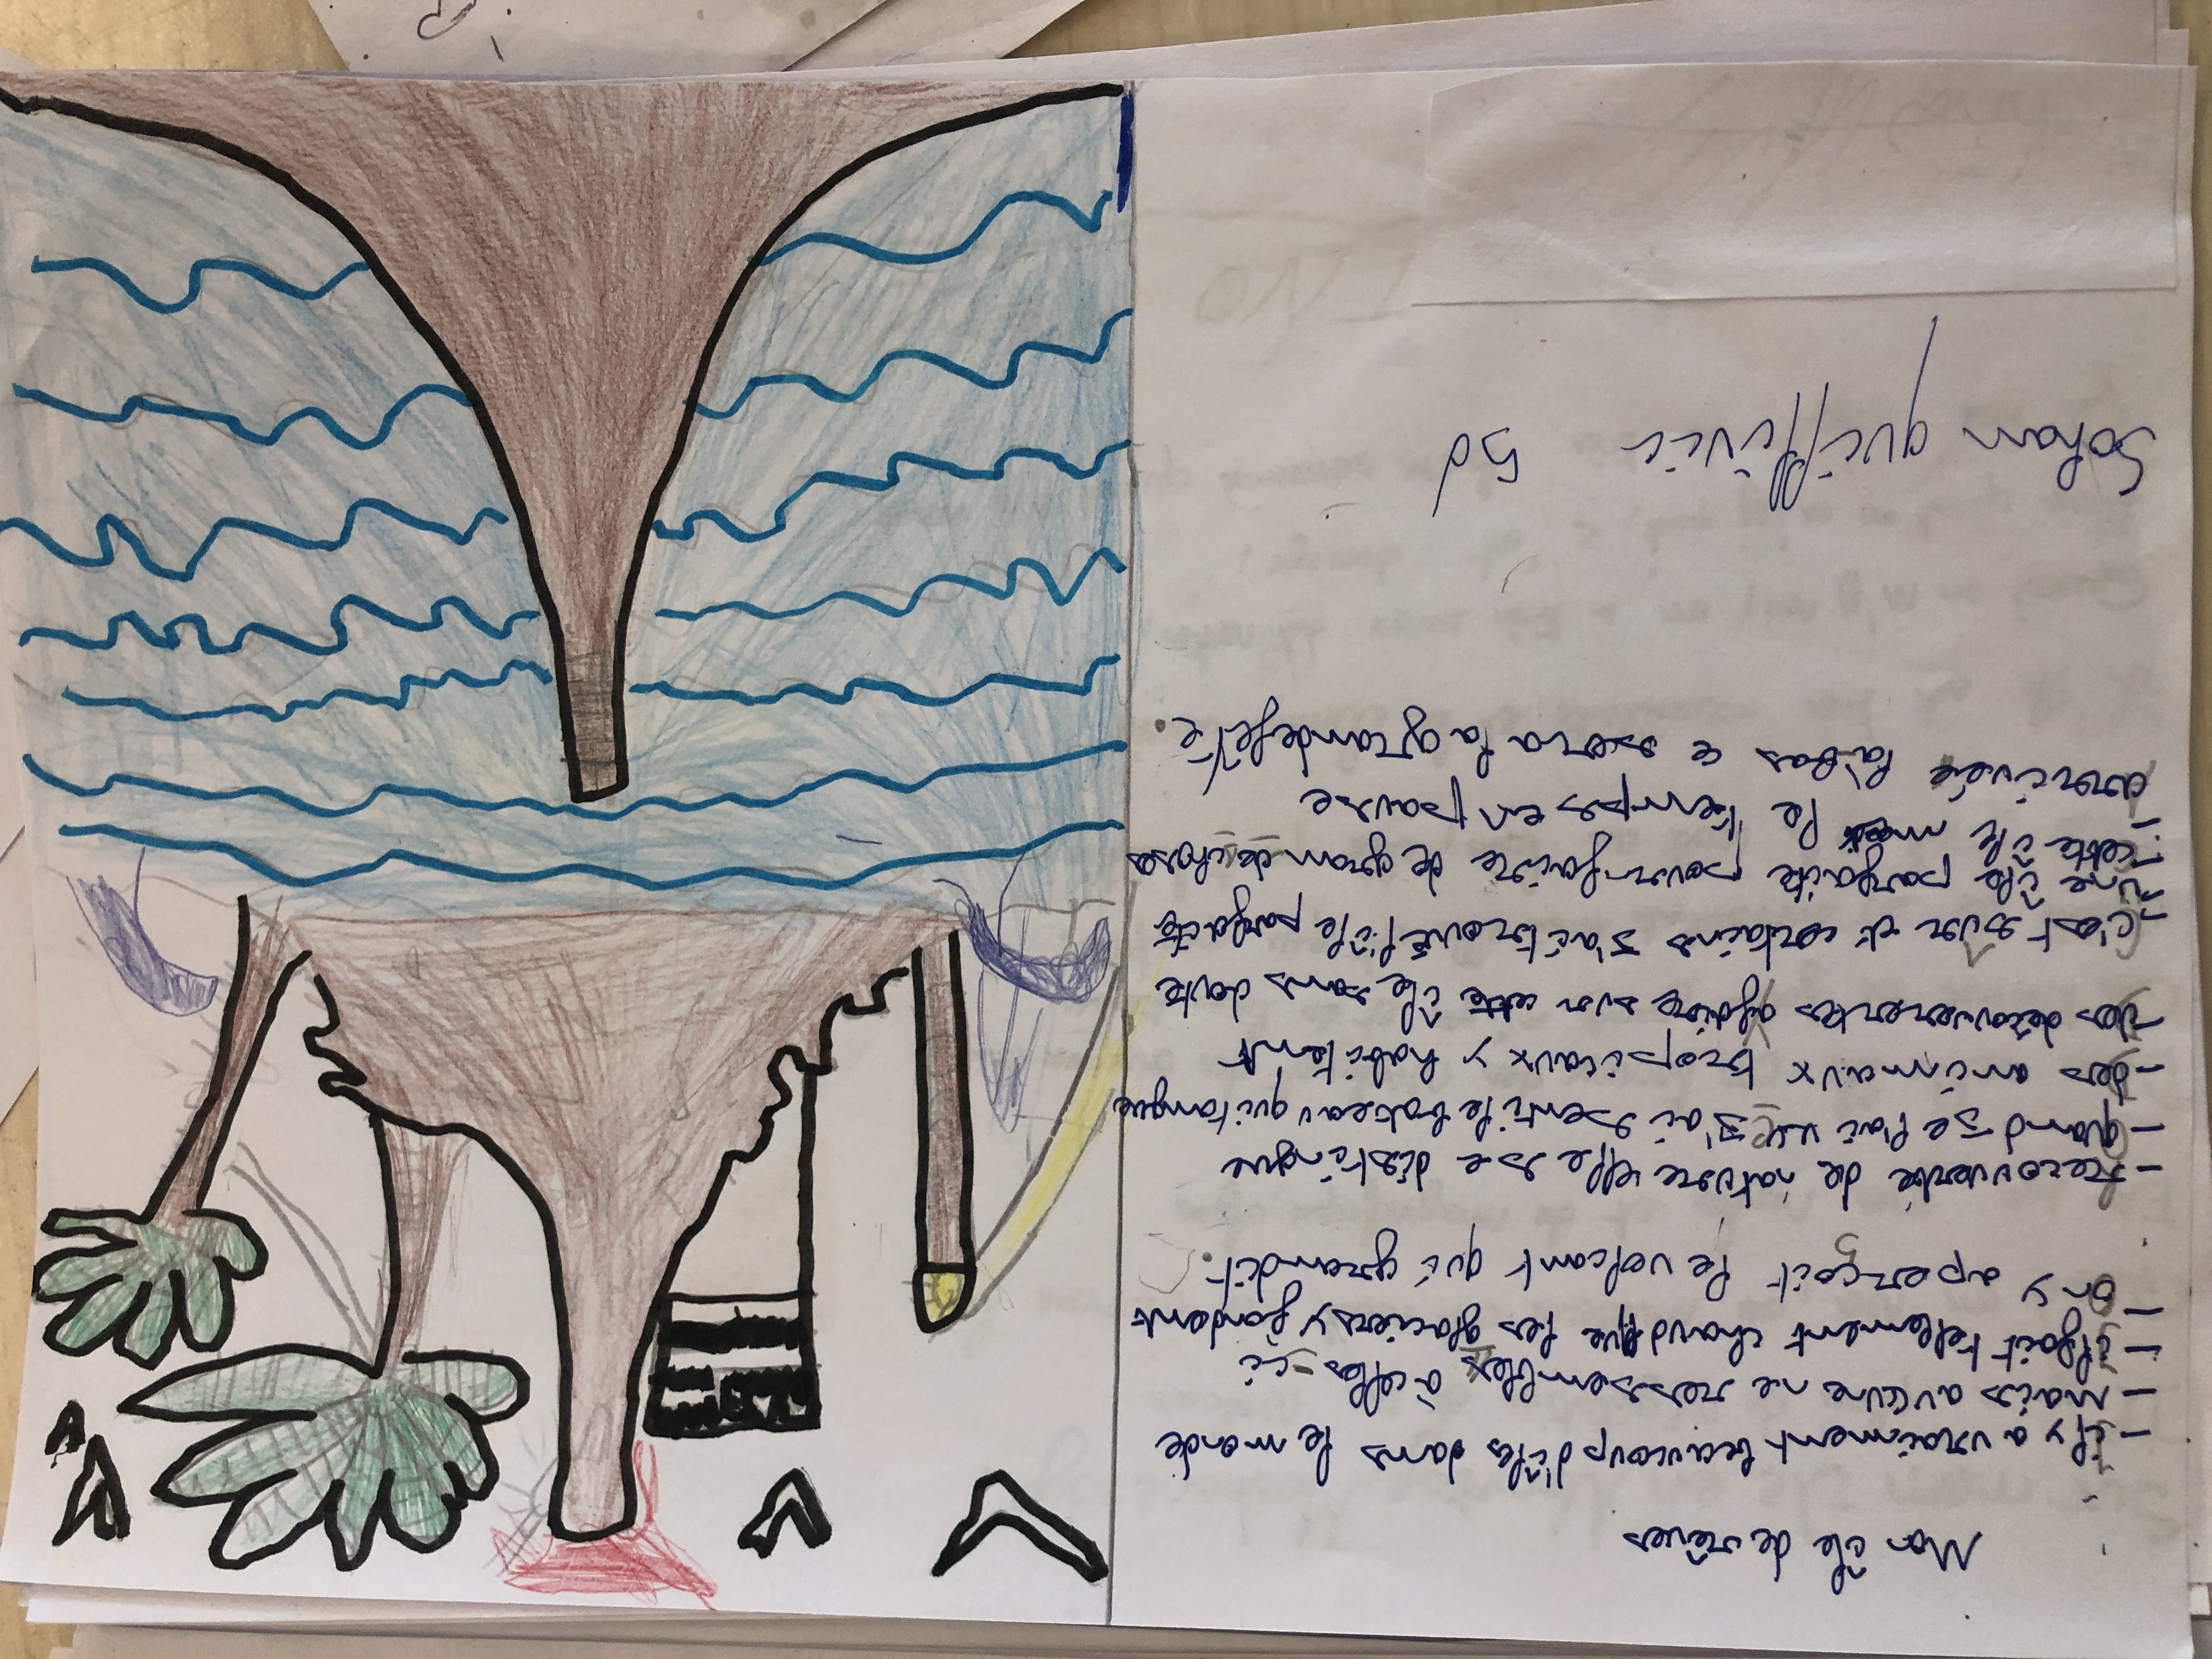 Mon île de rêves
- il y a vraiment beaucoup d'îles dans le monde
- Mais aucune ne ressembles à celles-ci
- il fait tellement chaud que les glaciers y fondent
- On y aperçoit le volcant qui grandit.
- Recouverte de nature elle se distingue
- quand Je l'ai vue J'ai senti le bateau qui tangue
- des animaux tropicaux y habitent
des découvertes à faire sur cette île sans doute
- C'est sur et certains J'ai trouvé l'île parfaite
- Une île parfaite pour faire de grande chose
- cette île met le temps en pause
- arrivée là bas ce sera la grande fête.
Sohan 5d